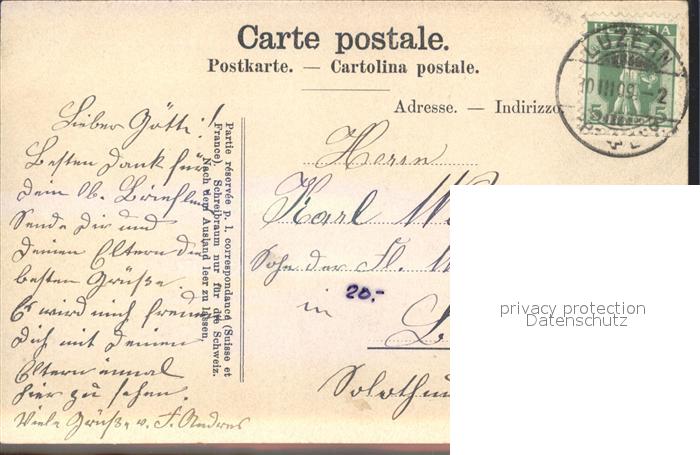 Carte postale.
Postkarte. — Cartolina postale.
Adresse. — Indirizzo
HELVETIA
5 5
LUZERN
Partie réservée p. l. correspondance (Suisse et
France). Schreibraum nur für die Schweiz.
Nach dem Ausland leer zu lassen.
Lieber Götti!
Besten Dank für
dein lb. Brieflein
Sende Dir und
Deinen Eltern die
besten Grüße.
Es wird mich freuen
Dich mit Deinen
Eltern einmal
hier zu sehen.
Viele Grüße v. F. Andres
Herrn
Karl
Sohn der
in
20.-
Solothu
privacy protection
Datenschutz